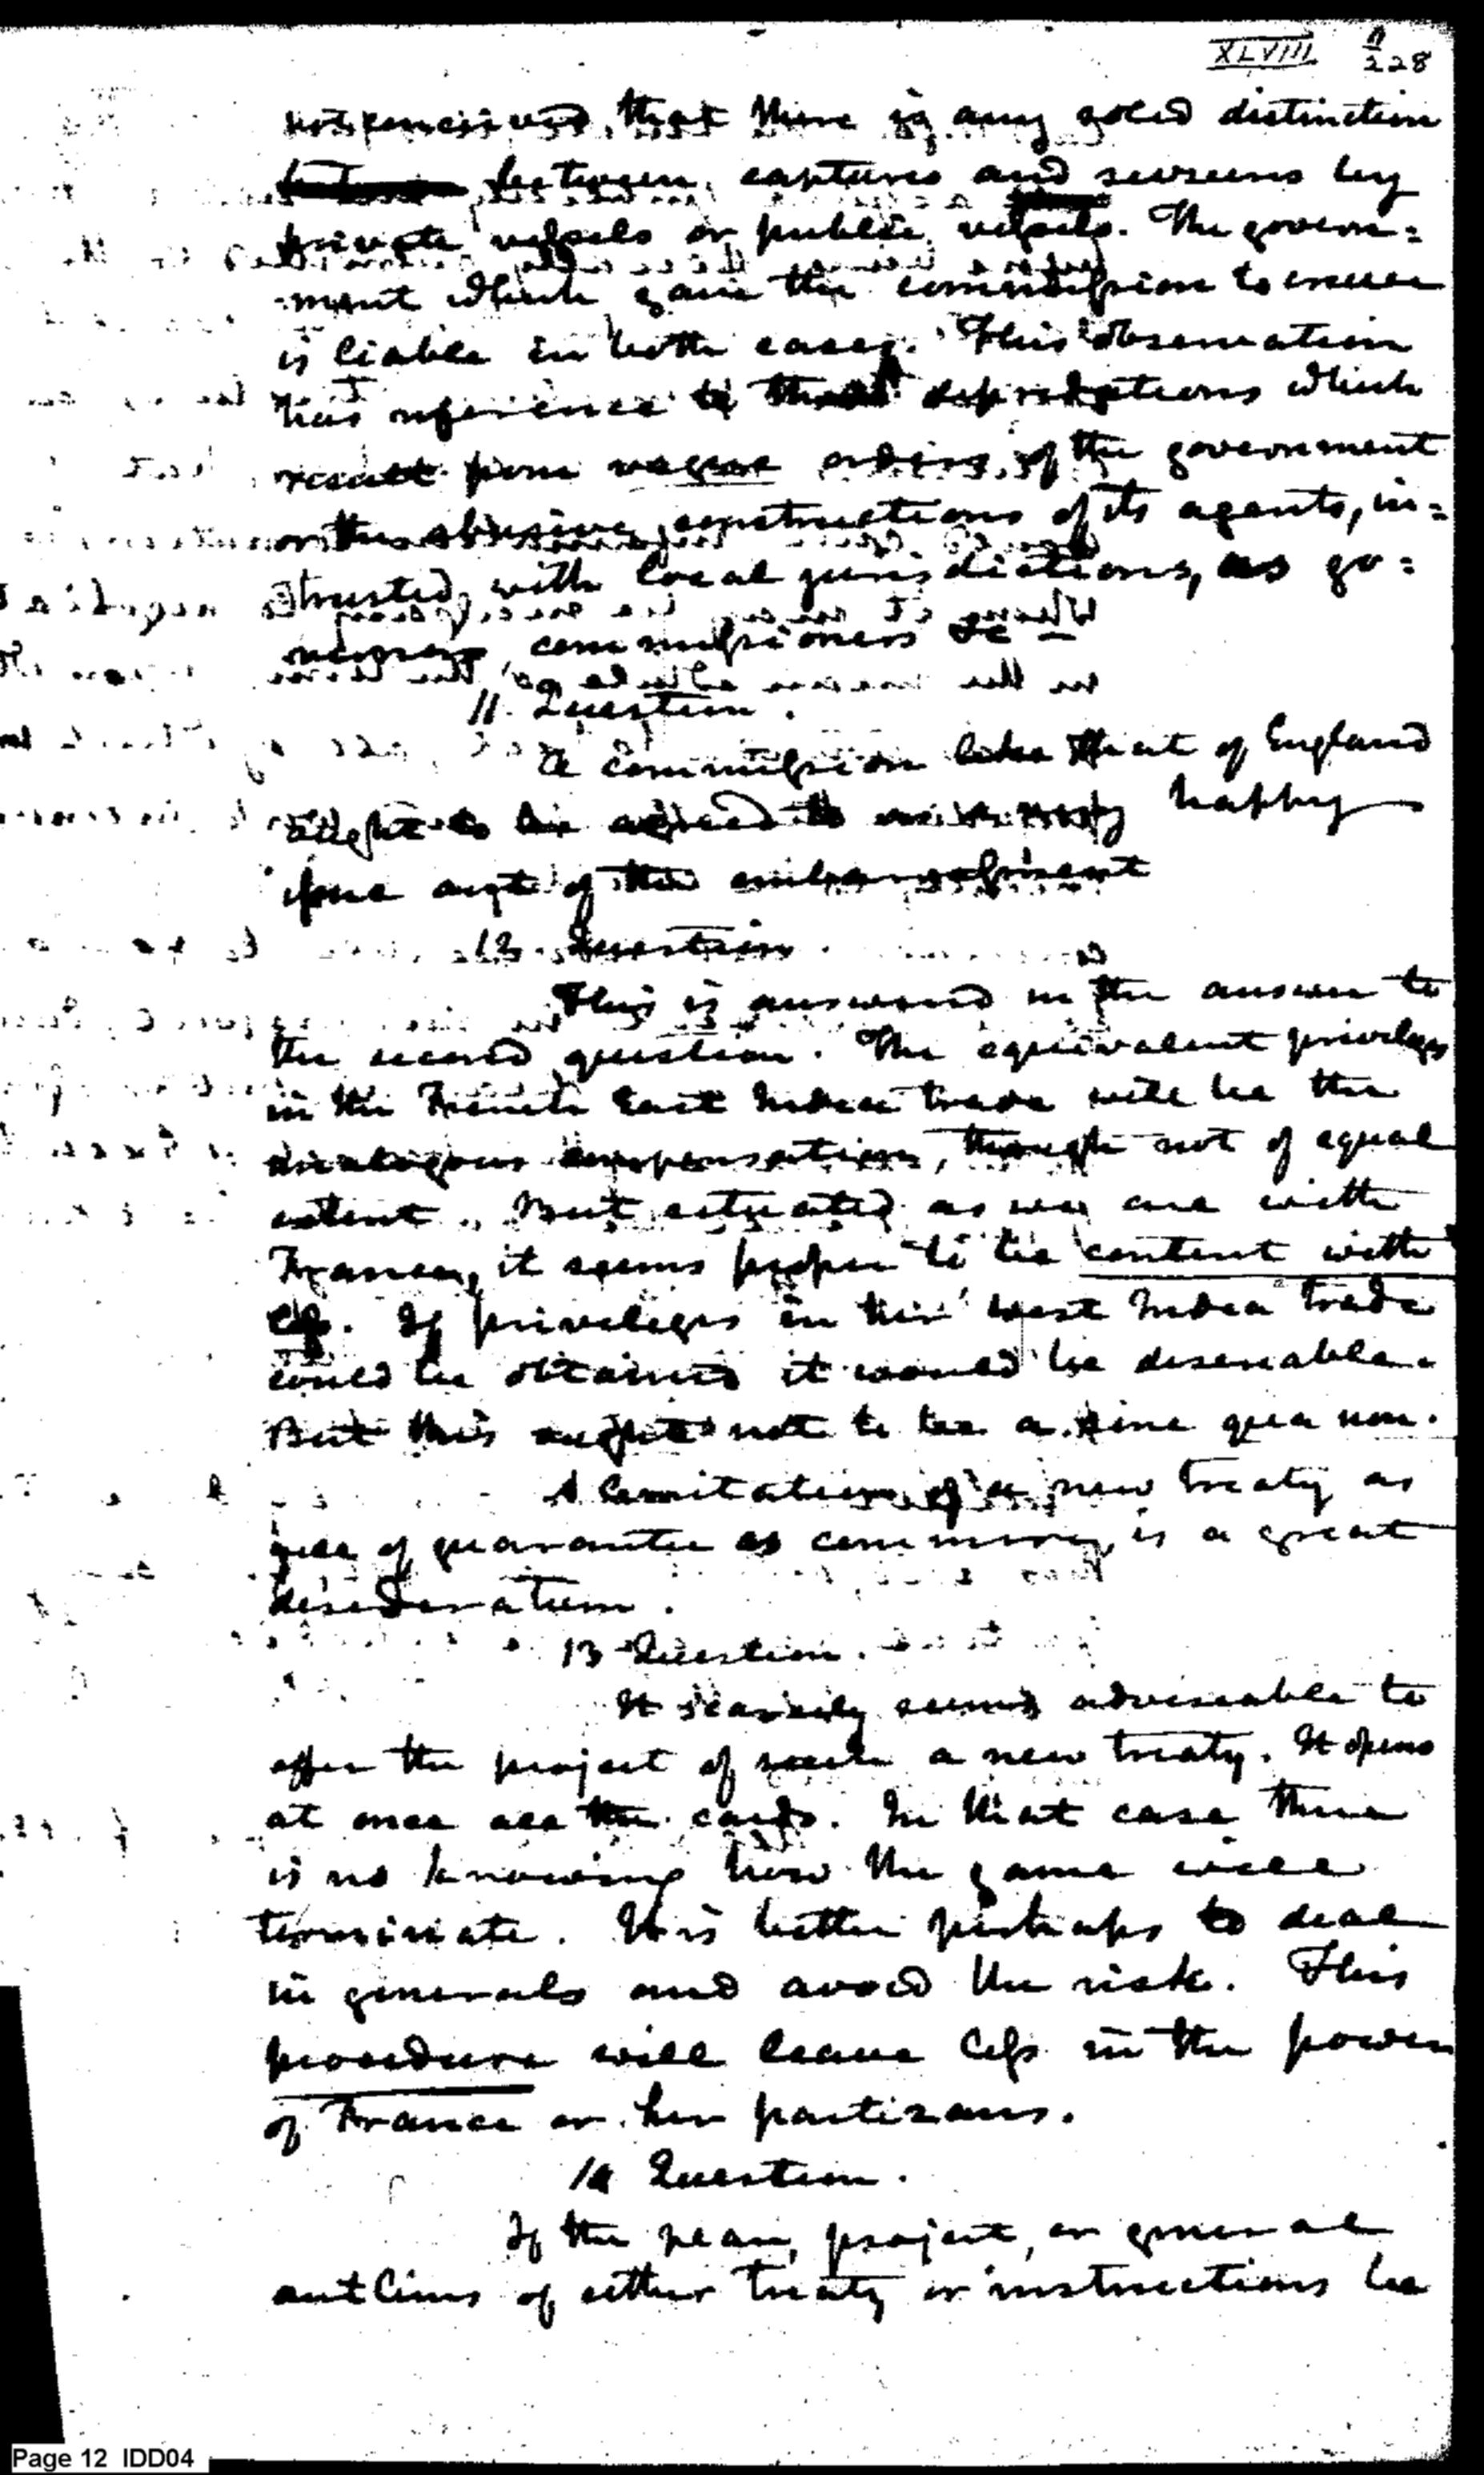 XLVIII 228
not perceived, that there is any solid distinction
between captures and seizures by
private vessels or public vessels. The govern=
-ment which gave the commission to cruise
is liable in both cases. This observation
has reference to depredations which
result from vague orders of the government
or the abusive constructions of its agents, in=
trusted with local jurisdictions, as go=
vernors, commissioners &c —
11. Question.
A commission like that of England
ought to be agreed to happy
out of the embarrassment
12. Question.
This is answered in the answer to
the second question. The equivalent privileges
in the French East India trade will be the
analogous compensation, though not of equal
extent. But situated as we are with
France, it seems proper to be content with
less. If privileges in her West India trade
could be obtained it would be desireable.
But this ought not to be a sine qua non.
A limitation of a new treaty as
well of guarantee as commerce, is a great
desideratum.
13 Question.
It scarcely seems adviseable to
offer the project of such a new treaty. It opens
at once all the cards. In that case there
is no knowing how the game will
terminate. It is better perhaps to deal
in generals and avoid the risk. This
procedure will leave less in the power
of France or her partizans.
14 Question.
If the plan, project, or general
outlines of either treaty or instructions be
Page 12 IDD04